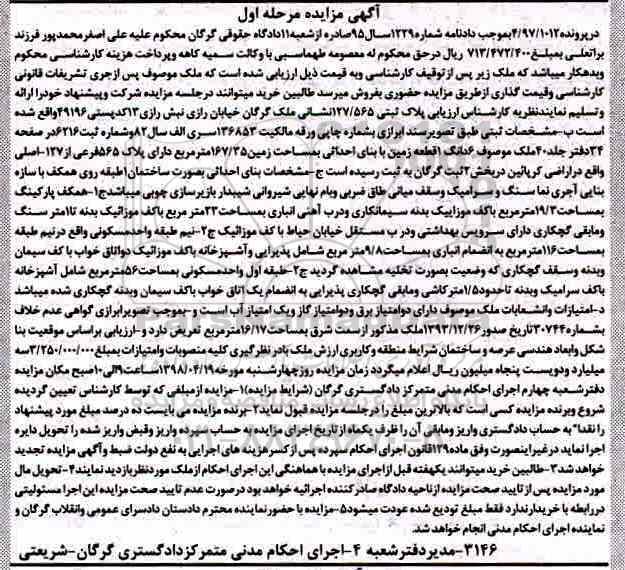 آگهی مزایده مرحله اول
درپرونده۴/۹۷/۱۰۱۲بموجب دادنامه شماره۱۲۲۹سال۹۵صادره ازشعبه۱۱دادگاه حقوقی گرگان محکوم علیه علی اصغرمحمدپور فرزند
براتعلی بمبلغ۷۱۳/۴۷۲/۴۰۰ ریال درحق محکوم له معصومه طهماسبی با وکالت سمیه کاهه وپرداخت هزینه کارشناسی محکوم
وبدهکار میباشد که ملک زیر پس ازتوقیف کارشناسی وبه قیمت ذیل ارزیابی شده است که ملک موصوف پس ازجری تشریفات قانونی
کارشناسی وقیمت گذاری ازطریق مزایده حضوری بفروش میرسد طالبین خرید میتوانند درجلسه مزایده شرکت وپیشنهاد خودرا ارائه
و تسلیم نمایندنظریه کارشناس ارزیابی پلاک ثبتی ۱۲۷/۵۶۵نشانی ملک گرگان خیابان رازی نبش رازی۱۳کدپستی۴۹۱۹۶واقع شده
است ب-مشخصات ثبتی طبق تصویرسند ابرازی بشماره چاپی ورقه مالکیت ۱۳۶۸۵۳سری الف سال۸۲وشماره ثبت۶۲۱۶در صفحه
۳۴دفتر جلد۴۰ملک موصوف ۶دانگ ۱قطعه زمین با بنای احداثی بمساحت زمین۱۶۷/۳۵مترمربع دارای پلاک ۵۶۵فرعی از۱۲۷-اصلی
واقع دراراضی کرپائین دربخش۲ثبت گرگان به ثبت رسیده است ج-مشخصات بنای احداثی بصورت ساختمان۱طبقه روی همکف با سازه
بنایی آجری نما سنگ و سرامیک وسقف مبانی طاق ضربی وبام نهایی شیروانی شیبدار بازیرسازی چوبی میباشدج۱-همکف پارکینگ
بمساحت۱۹/۳مترمربع باکف موزاییک بدنه سیمانکاری ودرب آهنی انباری بمساحت۲۳متر مربع باکف موزائیک بدنه تا۱متر سنگ
ومابقی گچکاری دارای سرویس بهداشتی ودر ب مستقل خیابان حیاط با کف موزائیک ج۲-نیم طبقه واحدمسکونی واقع درنیم طبقه
بمساحت۱۱۶مترمربع به انضمام انباری بمساحت۹/۸متر مربع شامل پذیرایی وآشپزخانه باکف موزائیک دواتاق خواب با کف سیمان
وبدنه وسقف گچکاری که وضعیت بصورت تخلیه مشاهده گردید ج۲-طبقه اول واحدمسکونی بمساحت۵۶مترمربع شامل آشپزخانه
باکف سرامیک وبدنه تاحدود۱/۵مترکاشی ومابقی گچکاری پذیرایی به انضمام یک اتاق خواب باکف سیمان وبدنه گچکاری شده میباشد
د-امتیازات وانشعابات ملک موصوف دارای دوامتیاز برق ودوامتیاز گاز ویک امتیاز آب است و-بموجب تصویرابرازی گواهی عدم خلاف
بشماره۳۰۷۴۴تاریخ صدور۱۳۹۳/۱۲/۲۶ملک مذکور ازسمت شرق بمساحت۱۶/۱۷مترمربع تعریض دارد و-ارزیابی براساس موقعیت بنا
شکل وابعاد هندسی عرصه و ساختمان شرایط منطقه وکاربری ارزش ملک بادر نظر گیری کلیه منصوبات وامتیازات بمبلغ۳/۲۵۰/۰۰۰/۰۰۰سه
میلیارد ودویست پنجاه میلیون ریال اعلام میگردد زمان مزایده روزچهارشنبه مورخه۱۳۹۸/۰۴/۱۹ساعت۹الی۱۰صبح مکان مزایده
دفترشعبه چهارم اجرای احکام مدنی متمرکز دادگستری گرگان (شرایط مزایده)۱-مزایده ازمبلغی که توسط کارشناس تعیین گردیده
شروع وبرنده مزایده کسی است که بالاترین مبلغ را درجلسه مزایده قبول نماید۲-برنده مزایده می بایست ده درصد مبلغ مورد پیشنهاد
را نقدا" به حساب دادگستری واریز ومابقی آن را ظرف یکماه از تاریخ اجرای مزایده به حساب سپرده واریز وقبض واریز شده را تحویل دایره
اجرا نماید درغیراینصورت وفق ماده۱۲۹قانون اجرای احکام سپرده پس از کسرهزینه های اجرایی به نفع دولت ضبط وآگهی مزایده تجدید
خواهد شد۳-طالبین خرید میتوانند یکهفته قبل ازاجرای مزایده با هماهنگی این اجرای احکام ازملک موردنظربازدید نمایند۴-تحویل مال
مورد مزایده پس از تایید صحت مزایده ازناحیه دادگاه صادرکننده اجرائیه خواهد بود درصورت عدم تایید صحت مزایده این اجرا مسئولیتی
دررابطه با خریدارندارد فقط مبلغ تودیع شده عودت میشود۵-مزایده با حضورنماینده محترم دادستان دادسرای عمومی وانقلاب گرگان و
نماینده اجرای احکام مدنی انجام خواهد شد.
۳۱۴۶-مدیردفترشعبه ۴-اجرای احکام مدنی متمرکزدادگستری گرگان-شریعتی